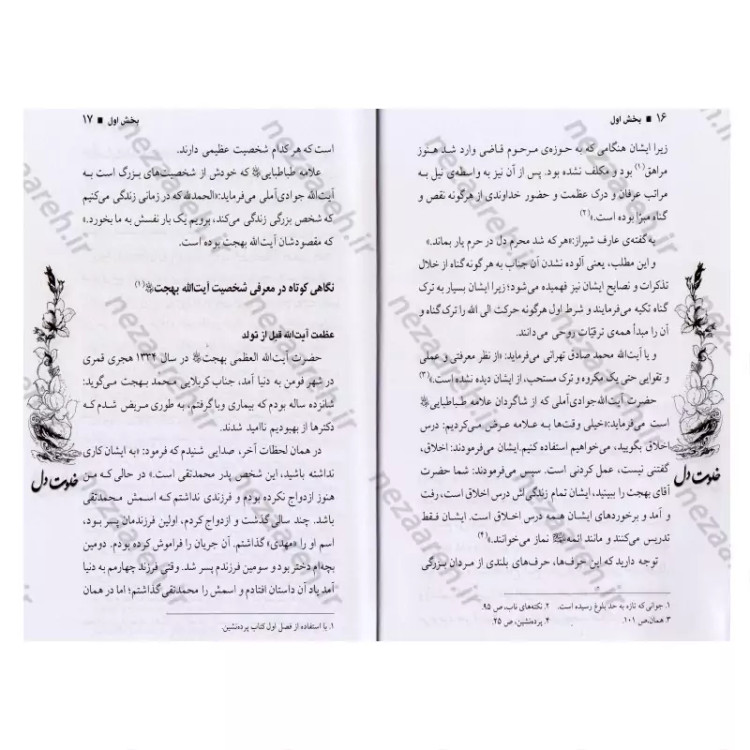 ۱۶ ■ بخش اول
زیرا ایشان هنگامی که به حوزه‌ی مرحوم قاضی وارد شد هنوز
مراهق(۱) بود و مکلف نشده بود. پس از آن نیز به واسطه‌ی نیل به
مراتب عرفان و درک عظمت و حضور خداوندی از هرگونه نقص و
گناه مبرّا بوده است.»(۲)
به گفته‌ی عارف شیراز: «هر که شد محرم دل در حرم یار بماند.»
و این مطلب، یعنی آلوده نشدن آن جناب به هر گونه گناه از خلال
تذکرات و نصایح ایشان نیز فهمیده می‌شود؛ زیرا ایشان بسیار به ترک
گناه تکیه می‌فرمایند و شرط اول هرگونه حرکت الی الله را ترک گناه و
آن را مبدأ همه‌ی ترقیّات روحی می‌دانند.
و یا آیت‌الله محمد صادق تهرانی می‌فرماید: «از نظر معرفتی و عملی
و تقوایی حتی یک مکروه و ترک مستحب، از ایشان دیده نشده است.»(۳)
حضرت آیت‌الله جوادی‌آملی که از شاگردان علامه طباطبایی
است می‌گوید: «خیلی وقت‌ها به علامه عرض می‌کردیم: درس
اخلاق بگویید، می‌خواهیم استفاده کنیم. ایشان می‌فرمودند: اخلاق،
گفتنی نیست، عمل کردنی است. سپس می‌فرمودند: شما حضرت
آقای بهجت را ببینید، ایشان تمام زندگی‌اش درس اخلاق است، رفت
و آمد و برخوردهای ایشان همه درس اخلاق است. ایشان فقط
تدریس می‌کنند و مانند ائمه نماز می‌خوانند.»(۴)
توجه دارید که این حرف‌ها، حرف‌های بلندی از مردان بزرگی
۱. جوانی که تازه به حد بلوغ رسیده است. ۲. نکته‌های ناب، ص ۹۵.
۳. همان، ص ۱۰۱. ۴. پرده‌نشین، ص ۲۵.
خلوت دل
بخش اول ■ ۱۷
است که هر کدام شخصیت عظیمی دارند.
علامه طباطبایی که خودش از شخصیت‌های بزرگ است به
آیت‌الله جوادی‌آملی می‌فرماید: «الحمدلله که در زمانی زندگی می‌کنیم
که شخص بزرگی زندگی می‌کند، برویم یک بار نفسش به ما بخورد.»
که مقصودشان آیت‌الله بهجت بوده است.
نگاهی کوتاه در معرفی شخصیت آیت‌الله بهجت(۱)
عظمت آیت‌الله قبل از تولد
حضرت آیت‌الله العظمی بهجت در سال ۱۳۳۴ هجری قمری
در شهر فومن به دنیا آمد، جناب کربلایی محمد بهجت می‌گوید:
شانزده ساله بودم که بیماری وبا گرفتم، به طوری مریض شدم که
دکترها از بهبودیم ناامید شدند.
در همان لحظات آخر، صدایی شنیدم که فرمود: «به ایشان کاری
نداشته باشید، این شخص پدر محمدتقی است.» در حالی که من
هنوز ازدواج نکرده بودم و فرزندی نداشتم که اسمش محمدتقی
باشد. چند سالی گذشت و ازدواج کردم، اولین فرزندمان پسر بود،
اسم او را «مهدی» گذاشتم. آن جریان را فراموش کرده بودم. دومین
بچه‌ام دختر بود و سومین فرزندم پسر شد. وقتی فرزند چهارمم به دنیا
آمد یاد آن داستان افتادم و اسمش را محمدتقی گذاشتم؛ اما در همان
۱. با استفاده از فصل اول کتاب پرده‌نشین.
خلوت دل
nezaareh.ir